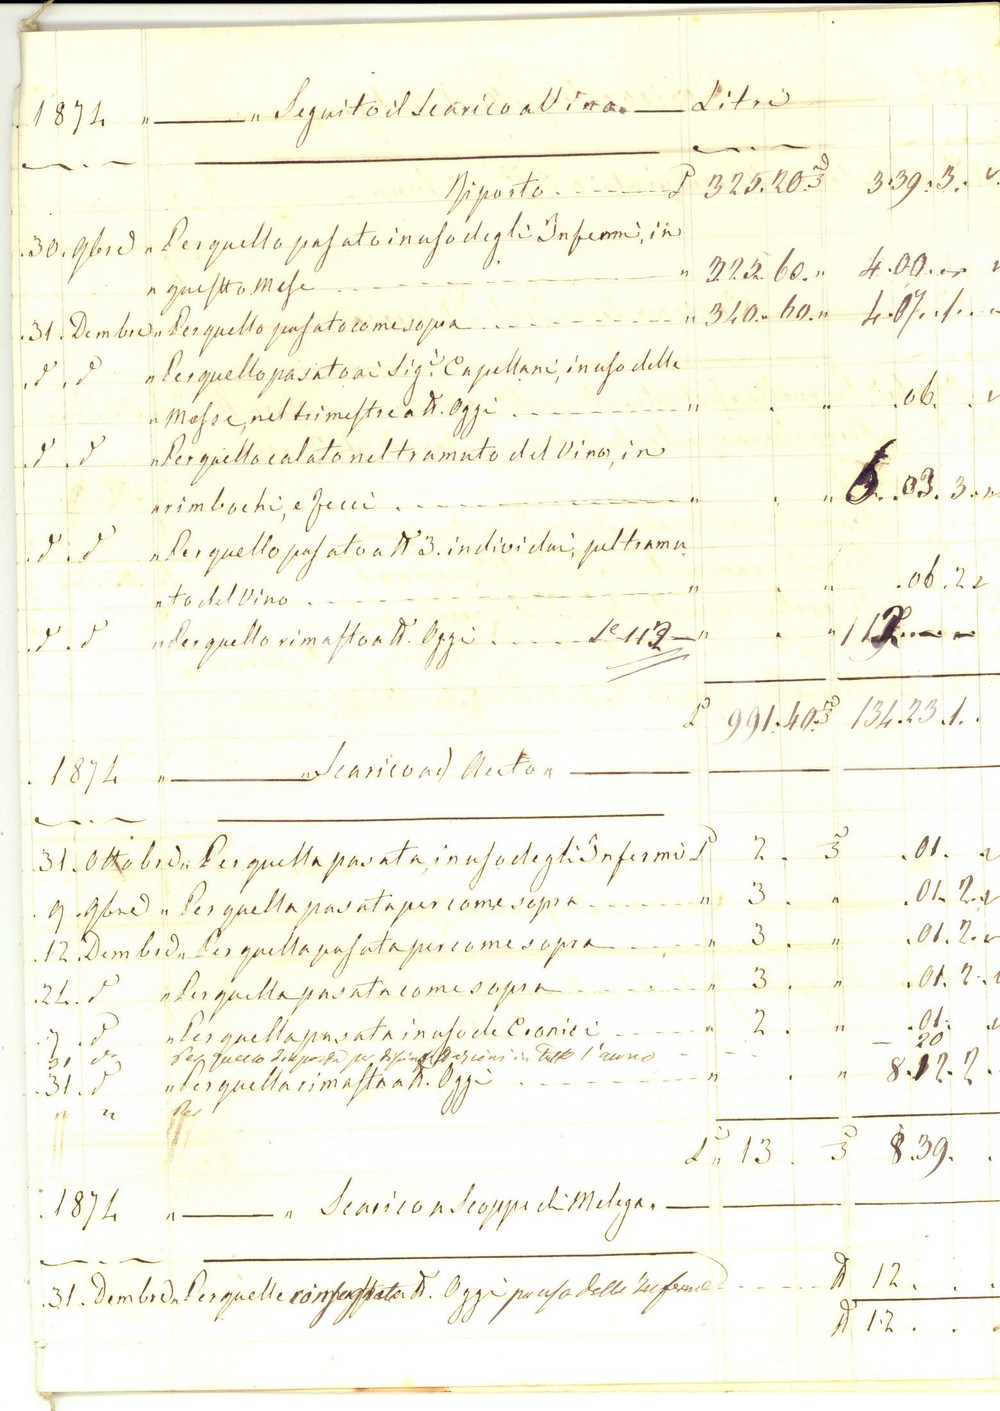 1874 " ——— " Seguito il Scarico a Vino. —— Litri
Riporto - - - - £ 325.20.3 339.3. "
.30. 9bre " Per quello passato in uso degli Infermi, in
" questto Mese - - - - " 325.60. " 4.00. "
.31. Dembre " Per quello passato come sopra - - - - " 340.60. " 4.07.1. "
.d°. d° " Per quello passato ai Sig.i Capellani, in uso delle
" Messe, nel trimestre a tt. Oggi - - - - " . " .06. . "
.d°. d° " Per quello calato nel tramuto del Vino, in
" rimbochi, e fecci . ——— " . " 6. .03. 3. "
.d°. d° " Per quello passato a N° 3. individui, pel tramu
" to del Vino . - - - - " . " .06.2 "
.d°. d° " Per quello rimasto a tt. Oggi - - - - Le 112 — " . " 112. — —
£ 991.40.3 134.23.1.
. 1874 " ——— " Scarico ad Aceto " ———
.31. Ottobre " Per quella pasata, in uso degli Infermi £ 2 . 3 .01. "
.9. 9bre " Per quella pasata per come sopra - - - - " 3 . " .01.2. "
.12. Dembre " Per quella pasata per come sopra - - - - " 3 . " .01.2. "
.24. d° " Per quella pasata come sopra - - - - " 3 . " .01.2. "
. d° " Per quella pasata in uso de Cronici - - - - " 2 . " .01. "
31 d° in tutto l'anno - - - — 20
.31. d° " Per quella rimasta a tt. Oggi - - - - " . " 8.12.2.
" " Per
£ " 13 . 3 8.39. .
. 1874 " ——— " Scarico a Scoppe di Melega. ———
.31. Dembre " Per quelle a tt. Oggi per uso delle Inferme - - - - N° 12 . . .
N° 12 . . .